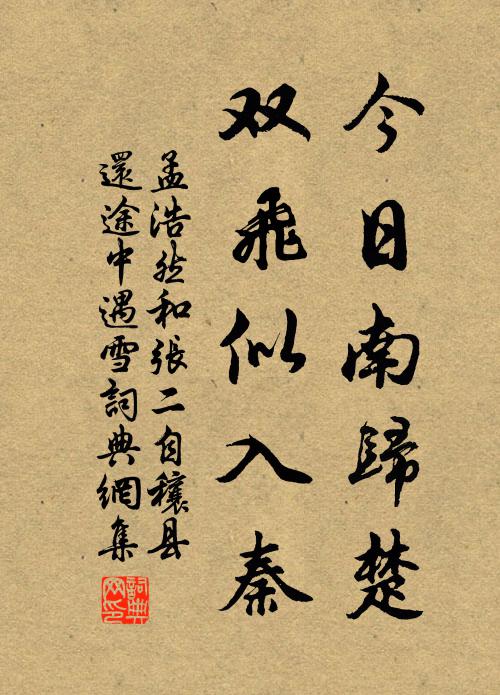 今日南歸楚
双飛似入秦
孟浩然和張二自穰县
還途中遇雪詞典網集
詞典
网印